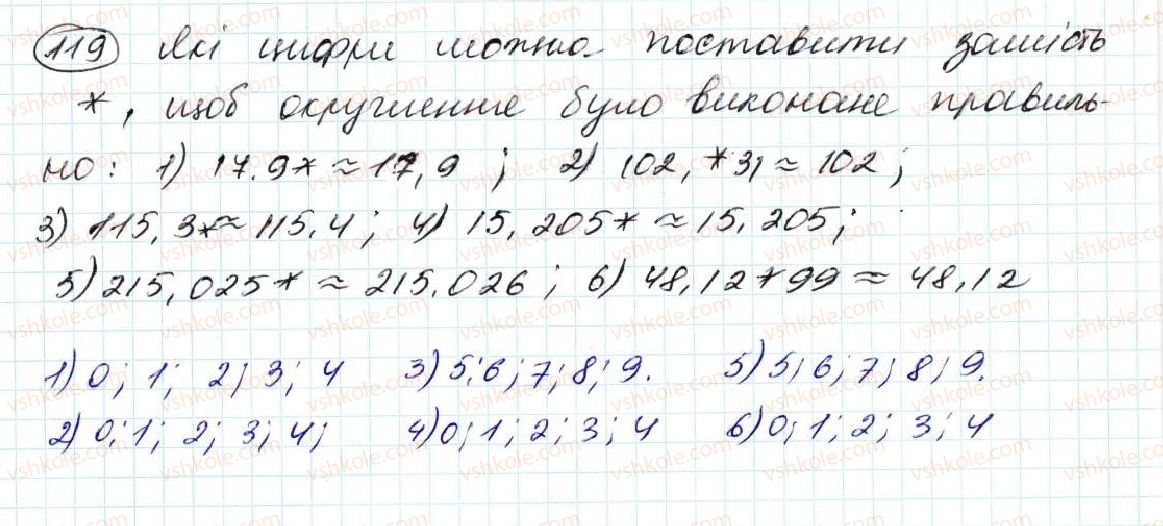 119 Які цифри можна поставити замість
*, щоб округлення було виконане правиль-
но: 1) 17.9* ≈ 17,9 ; 2) 102,*3, ≈ 102 ;
3) 115,3* ≈ 115.4 ; 4) 15,205* ≈ 15,205 ;
5) 215,025* ≈ 215.026 ; 6) 48,12*99 ≈ 48,12
1) 0; 1; 2; 3; 4 3) 5; 6; 7; 8; 9. 5) 5; 6; 7; 8; 9.
2) 0; 1; 2; 3; 4; 4) 0; 1; 2; 3; 4 6) 0; 1; 2; 3; 4
vshkole.com